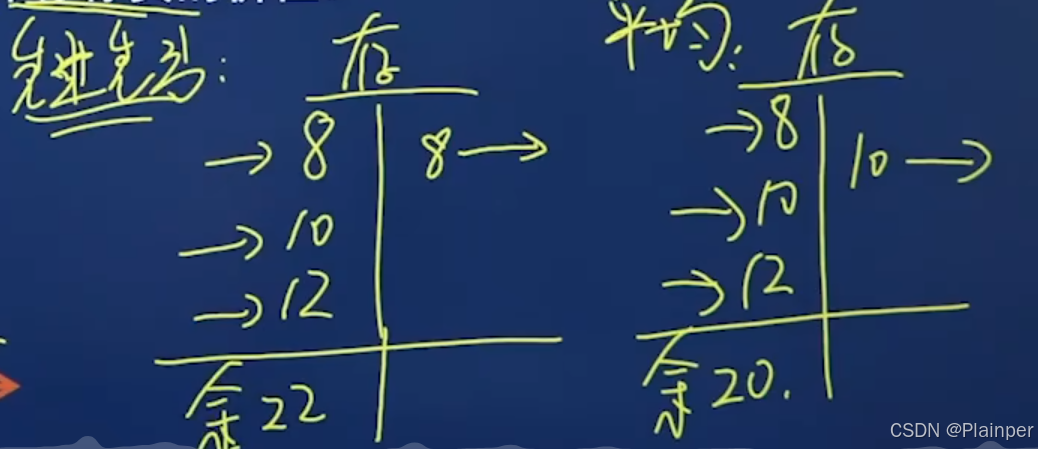 先进先出： 存
→ 8 8 →
→ 10
→ 12
余 22
平均： 存
→ 8 10 →
→ 10
→ 12
余 20.
CSDN @Plainper